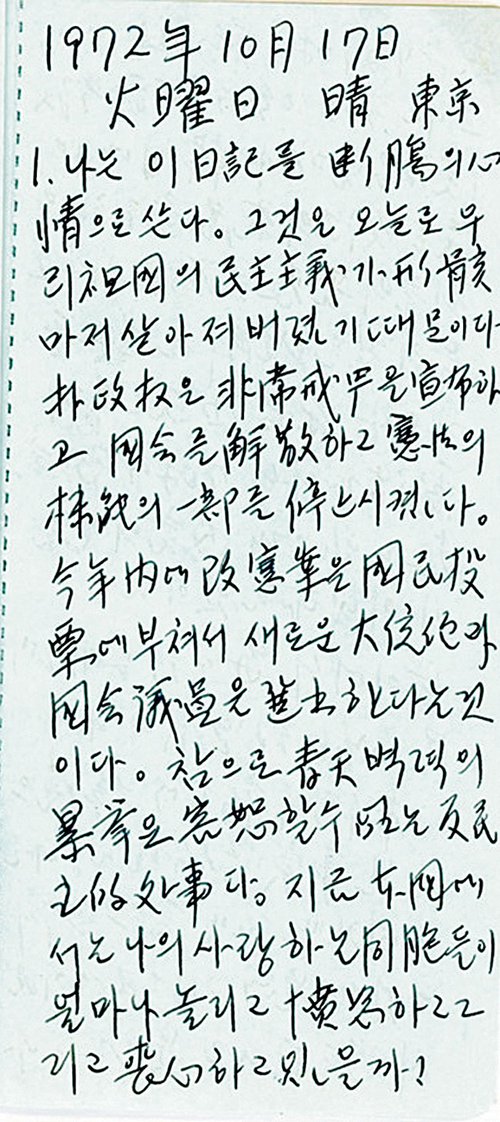 1972年 10月 17日
火曜日 晴 東京
1. 나는 이 日記를 断腸의 心
情으로 쓴다。그것은 오늘로 우
리 祖國의 民主主義가 形骸
마저 살아져 버렸기 때문이다
朴政权은 非常戒严을 宣布하
고 國会를 解散하고 憲法의
機能의 一部를 停止시켰다。
今年内에 改憲案을 國民投
票에 부쳐서 새로운 大統領과
国会議員을 選出한다는 것
이다。참으로 青天벽력의
暴挙요 容恕할 수 없는 反民
主的 处事다。지금 本國에
서는 나의 사랑하는 同胞들이
얼마나 놀라고 憤怒하고 그
리고 喪心하고 있을까?